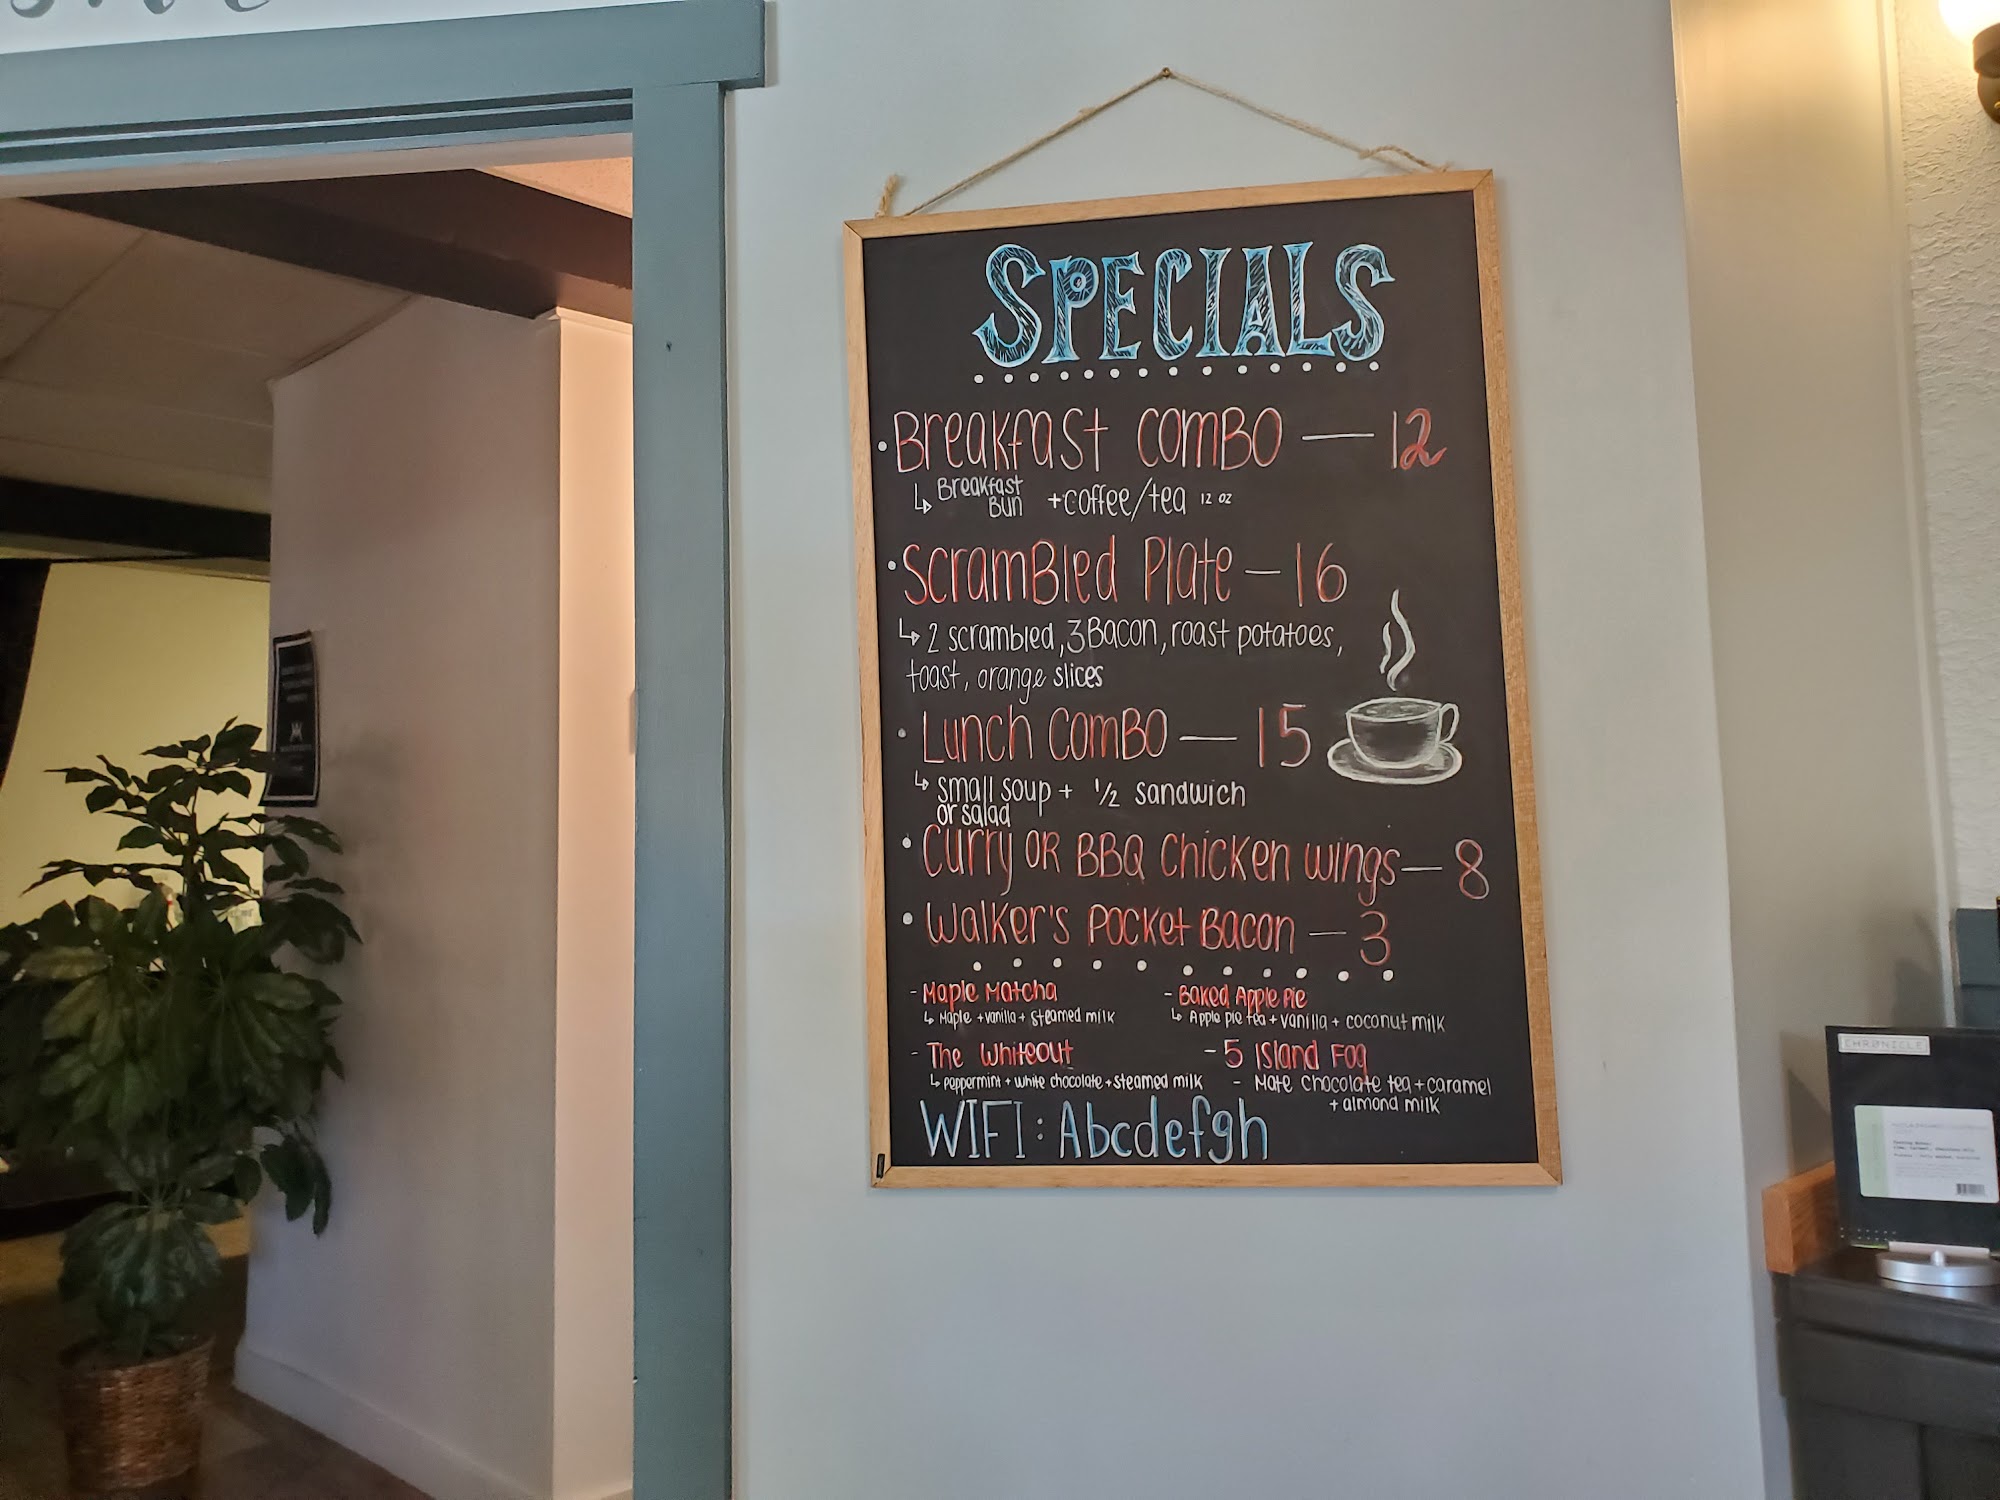 SPECIALS
• Breakfast Combo — 12
↳ Breakfast Bun +coffee/tea 12 oz
• Scrambled Plate — 16
↳ 2 scrambled, 3 Bacon, roast potatoes,
toast, orange slices
• Lunch Combo — 15
↳ small soup + 1/2 sandwich
or salad
• Curry OR BBQ Chicken wings — 8
• Walker's Pocket Bacon — 3
- Maple Matcha
↳ Maple + vanilla + steamed milk
- Baked Apple Pie
↳ Apple pie tea + vanilla + coconut milk
- The Whiteout
↳ peppermint + white chocolate + steamed milk
- 5 Island Fog
- Mate chocolate tea + caramel
+ almond milk
WIFI: Abcdefgh
CHRONICLE